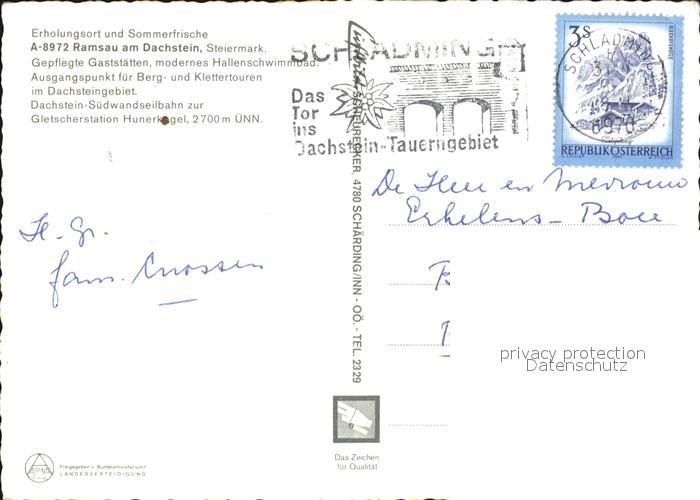 Erholungsort und Sommerfrische
A-8972 Ramsau am Dachstein, Steiermark.
Gepflegte Gaststätten, modernes Hallenschwimmbad.
Ausgangspunkt für Berg- und Klettertouren
im Dachsteingebiet.
Dachstein-Südwandseilbahn zur
Gletscherstation Hunerkogel, 2700 m ÜNN.
SCHLADMING
Das
Tor
ins
Dachstein-Tauerngebiet
3s
SCHLADMING
8970
REPUBLIK ÖSTERREICH
SCHEURECKER, 4780 SCHÄRDING/INN - OÖ. - TEL. 2329
De Heer en Mevrouw
Erkelens - Boer
H. Gr.
fam. Knossen
privacy protection
Datenschutz
Das Zeichen
für Qualität
Freigegeben v. Bundesministerium f.
LANDESVERTEIDIGUNG